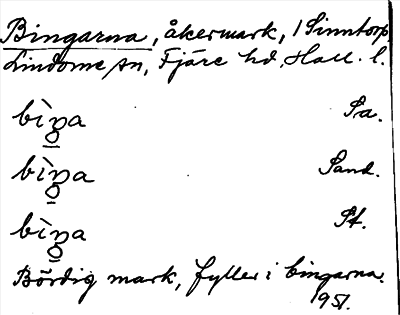 Bingarna, åkermark, 1 Sinntorp,
Lindome sn, Fjäre hd, Hall. l.
bìŋa Sa.
bìŋa Sand.
bìŋa St.
Bördig mark, fyller i bingarna.
1951.